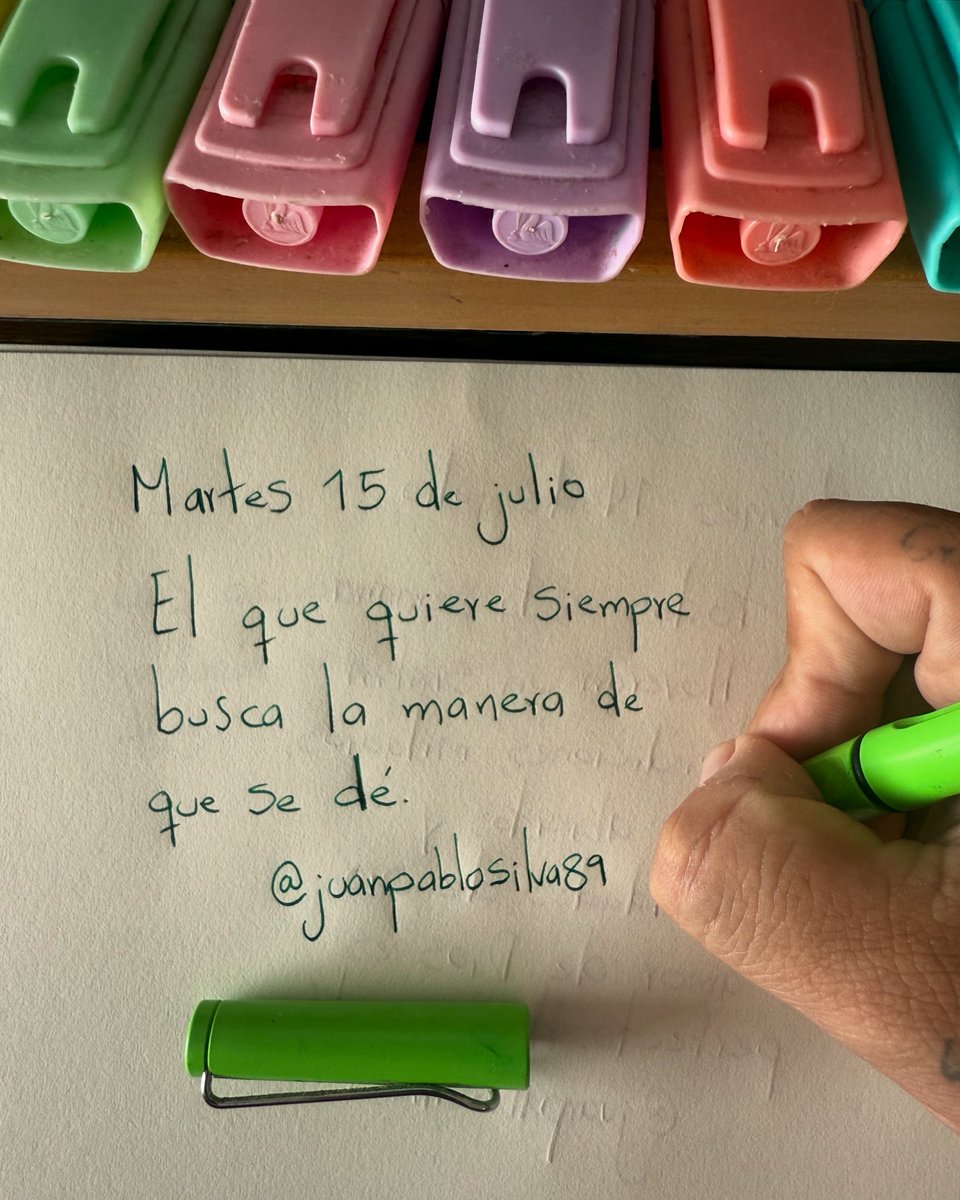 Martes 15 de julio
El que quiere siempre
busca la manera de
que se dé.
@juanpablosilva89